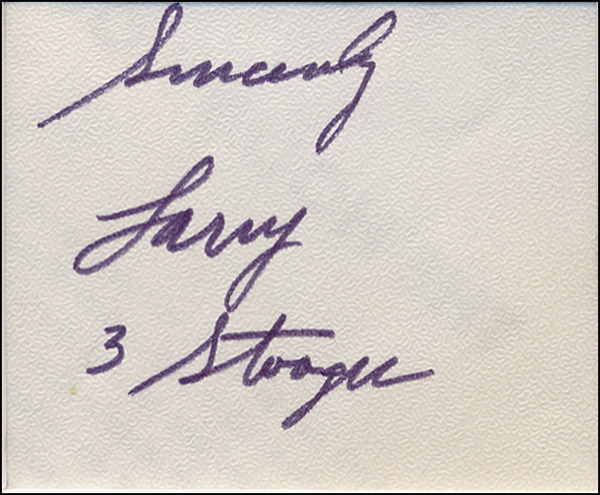 Sincerely
Larry
3 Stooges